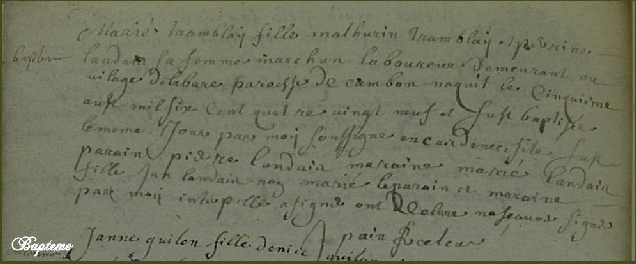 Marié tramblay fille mathurin tramblay et perine
landain sa femme marchan laboureur demeurant au
baptem
vilage delabare paroisse de cambon naquit le cinquieme
aust mil six cent quatre vingt neuf et fust baptisée
le meme jour par moy soussigne en cas de necessite fust
parain pierre landain maraine marié landain
fille jan landain non marié le parain et maraine
par moy interpellé a signe ont declare ne scavoir signé
Janne guilon fille denis
Bapteme